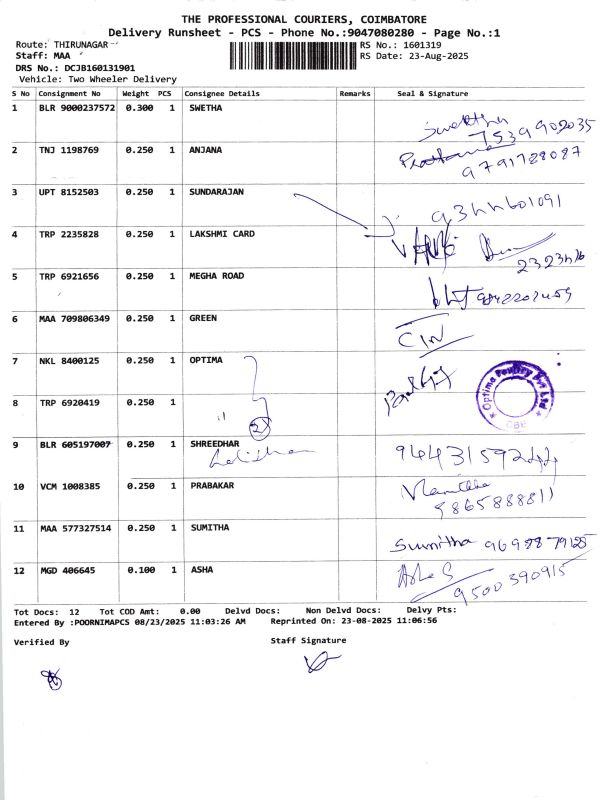 THE PROFESSIONAL COURIERS, COIMBATORE
Delivery Runsheet - PCS - Phone No.:9047080280 - Page No.:1
Route: THIRUNAGAR
RS No.: 1601319
Staff: MAA
RS Date: 23-Aug-2025
DRS No.: DCJB160131901
Vehicle: Two Wheeler Delivery
S No Consignment No Weight PCS Consignee Details Remarks Seal & Signature
1 BLR 9000237572 0.300 1 SWETHA
Swetha
7539902035
2 TNJ 1198769 0.250 1 ANJANA
9791728087
3 UPT 8152503 0.250 1 SUNDARAJAN
4 TRP 2235828 0.250 1 LAKSHMI CARD
5 TRP 6921656 0.250 1 MEGHA ROAD
6 MAA 709806349 0.250 1 GREEN
7 NKL 8400125 0.250 1 OPTIMA
Optima Poultry Pvt Ltd
CBE
8 TRP 6920419 0.250 1
2
9 BLR 605197007 0.250 1 SHREEDHAR
10 VCM 1008385 0.250 1 PRABAKAR
9865888811
11 MAA 577327514 0.250 1 SUMITHA
Sumitha
12 MGD 406645 0.100 1 ASHA
Asha S
9500390915
Tot Docs: 12 Tot COD Amt: 0.00 Delvd Docs: Non Delvd Docs: Delvy Pts:
Entered By :POORNIMAPCS 08/23/2025 11:03:26 AM Reprinted On: 23-08-2025 11:06:56
Verified By Staff Signature